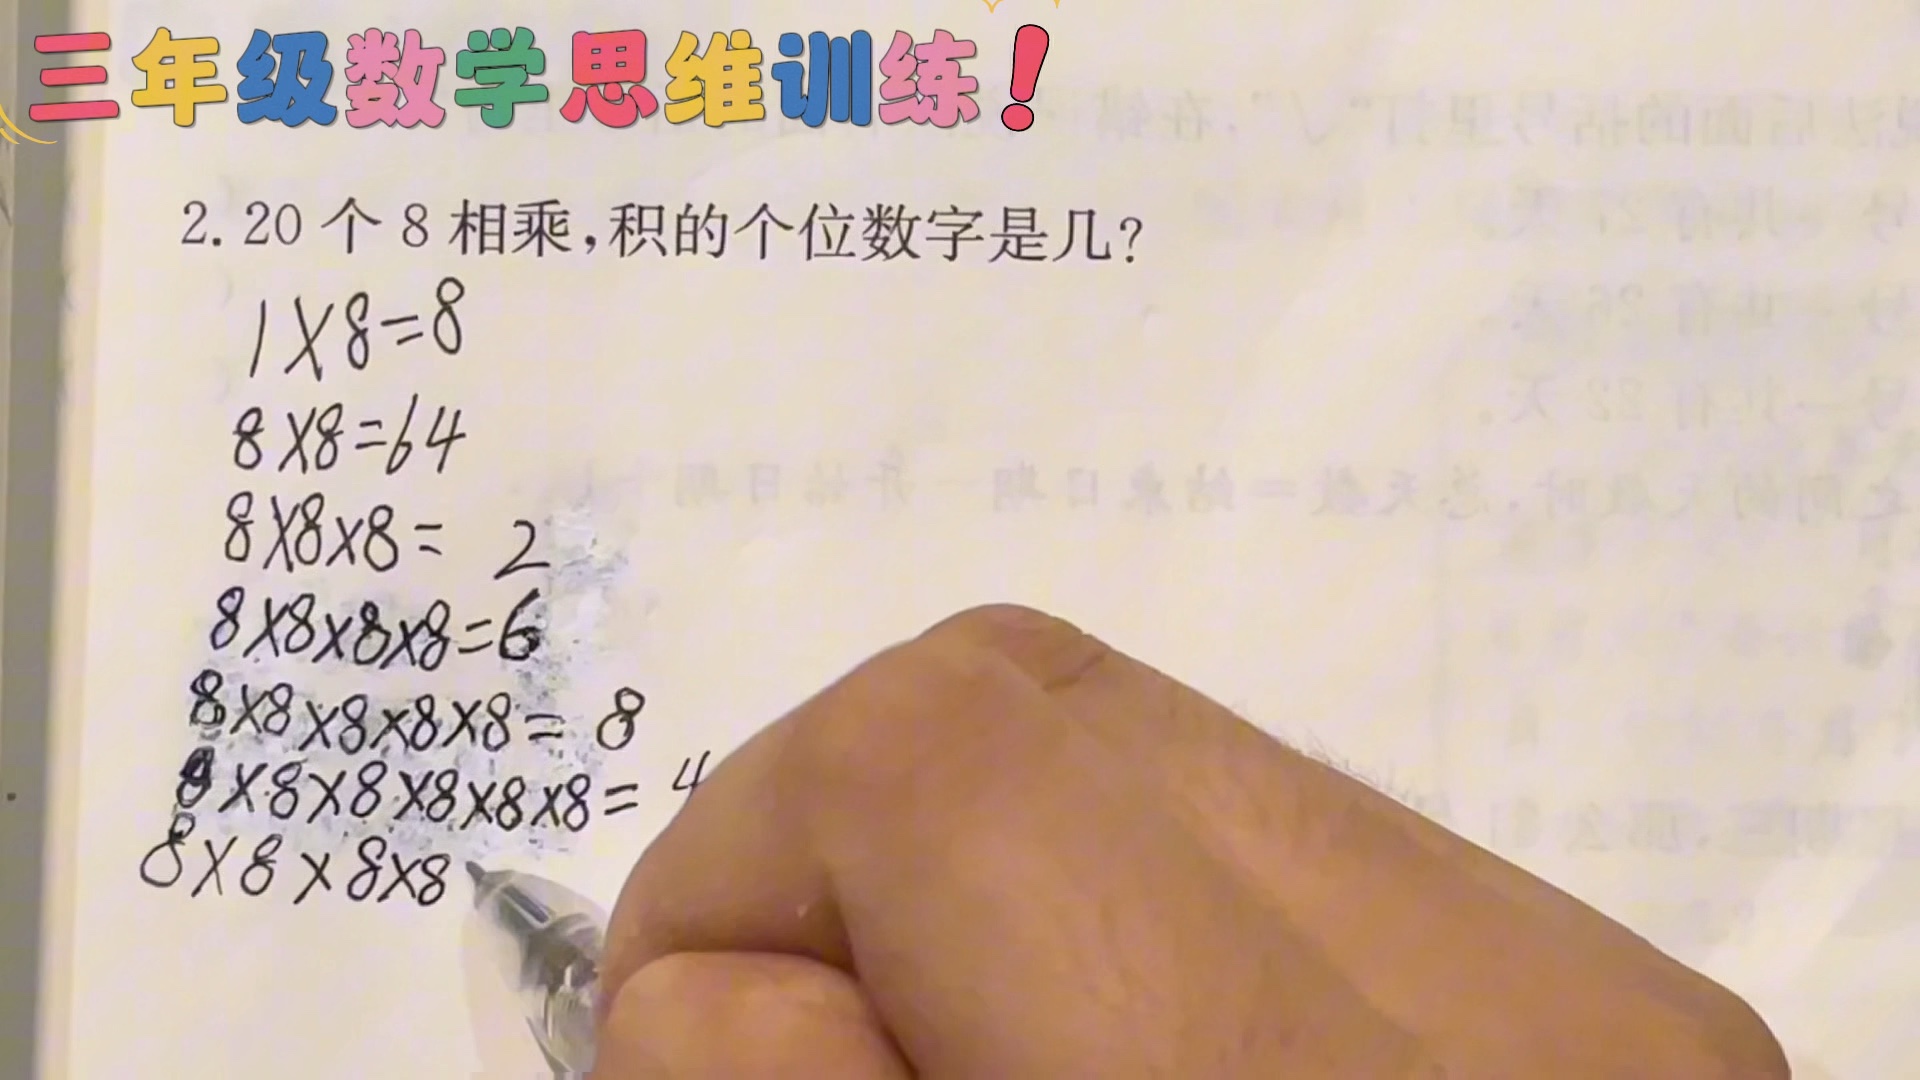 三年级数学思维训练！
2.20个8相乘,积的个位数字是几?
1×8=8
8×8=64
8×8×8= 2
8×8×8×8=6
8×8×8×8×8= 8
8×8×8×8×8×8= 4
8×8×8×8